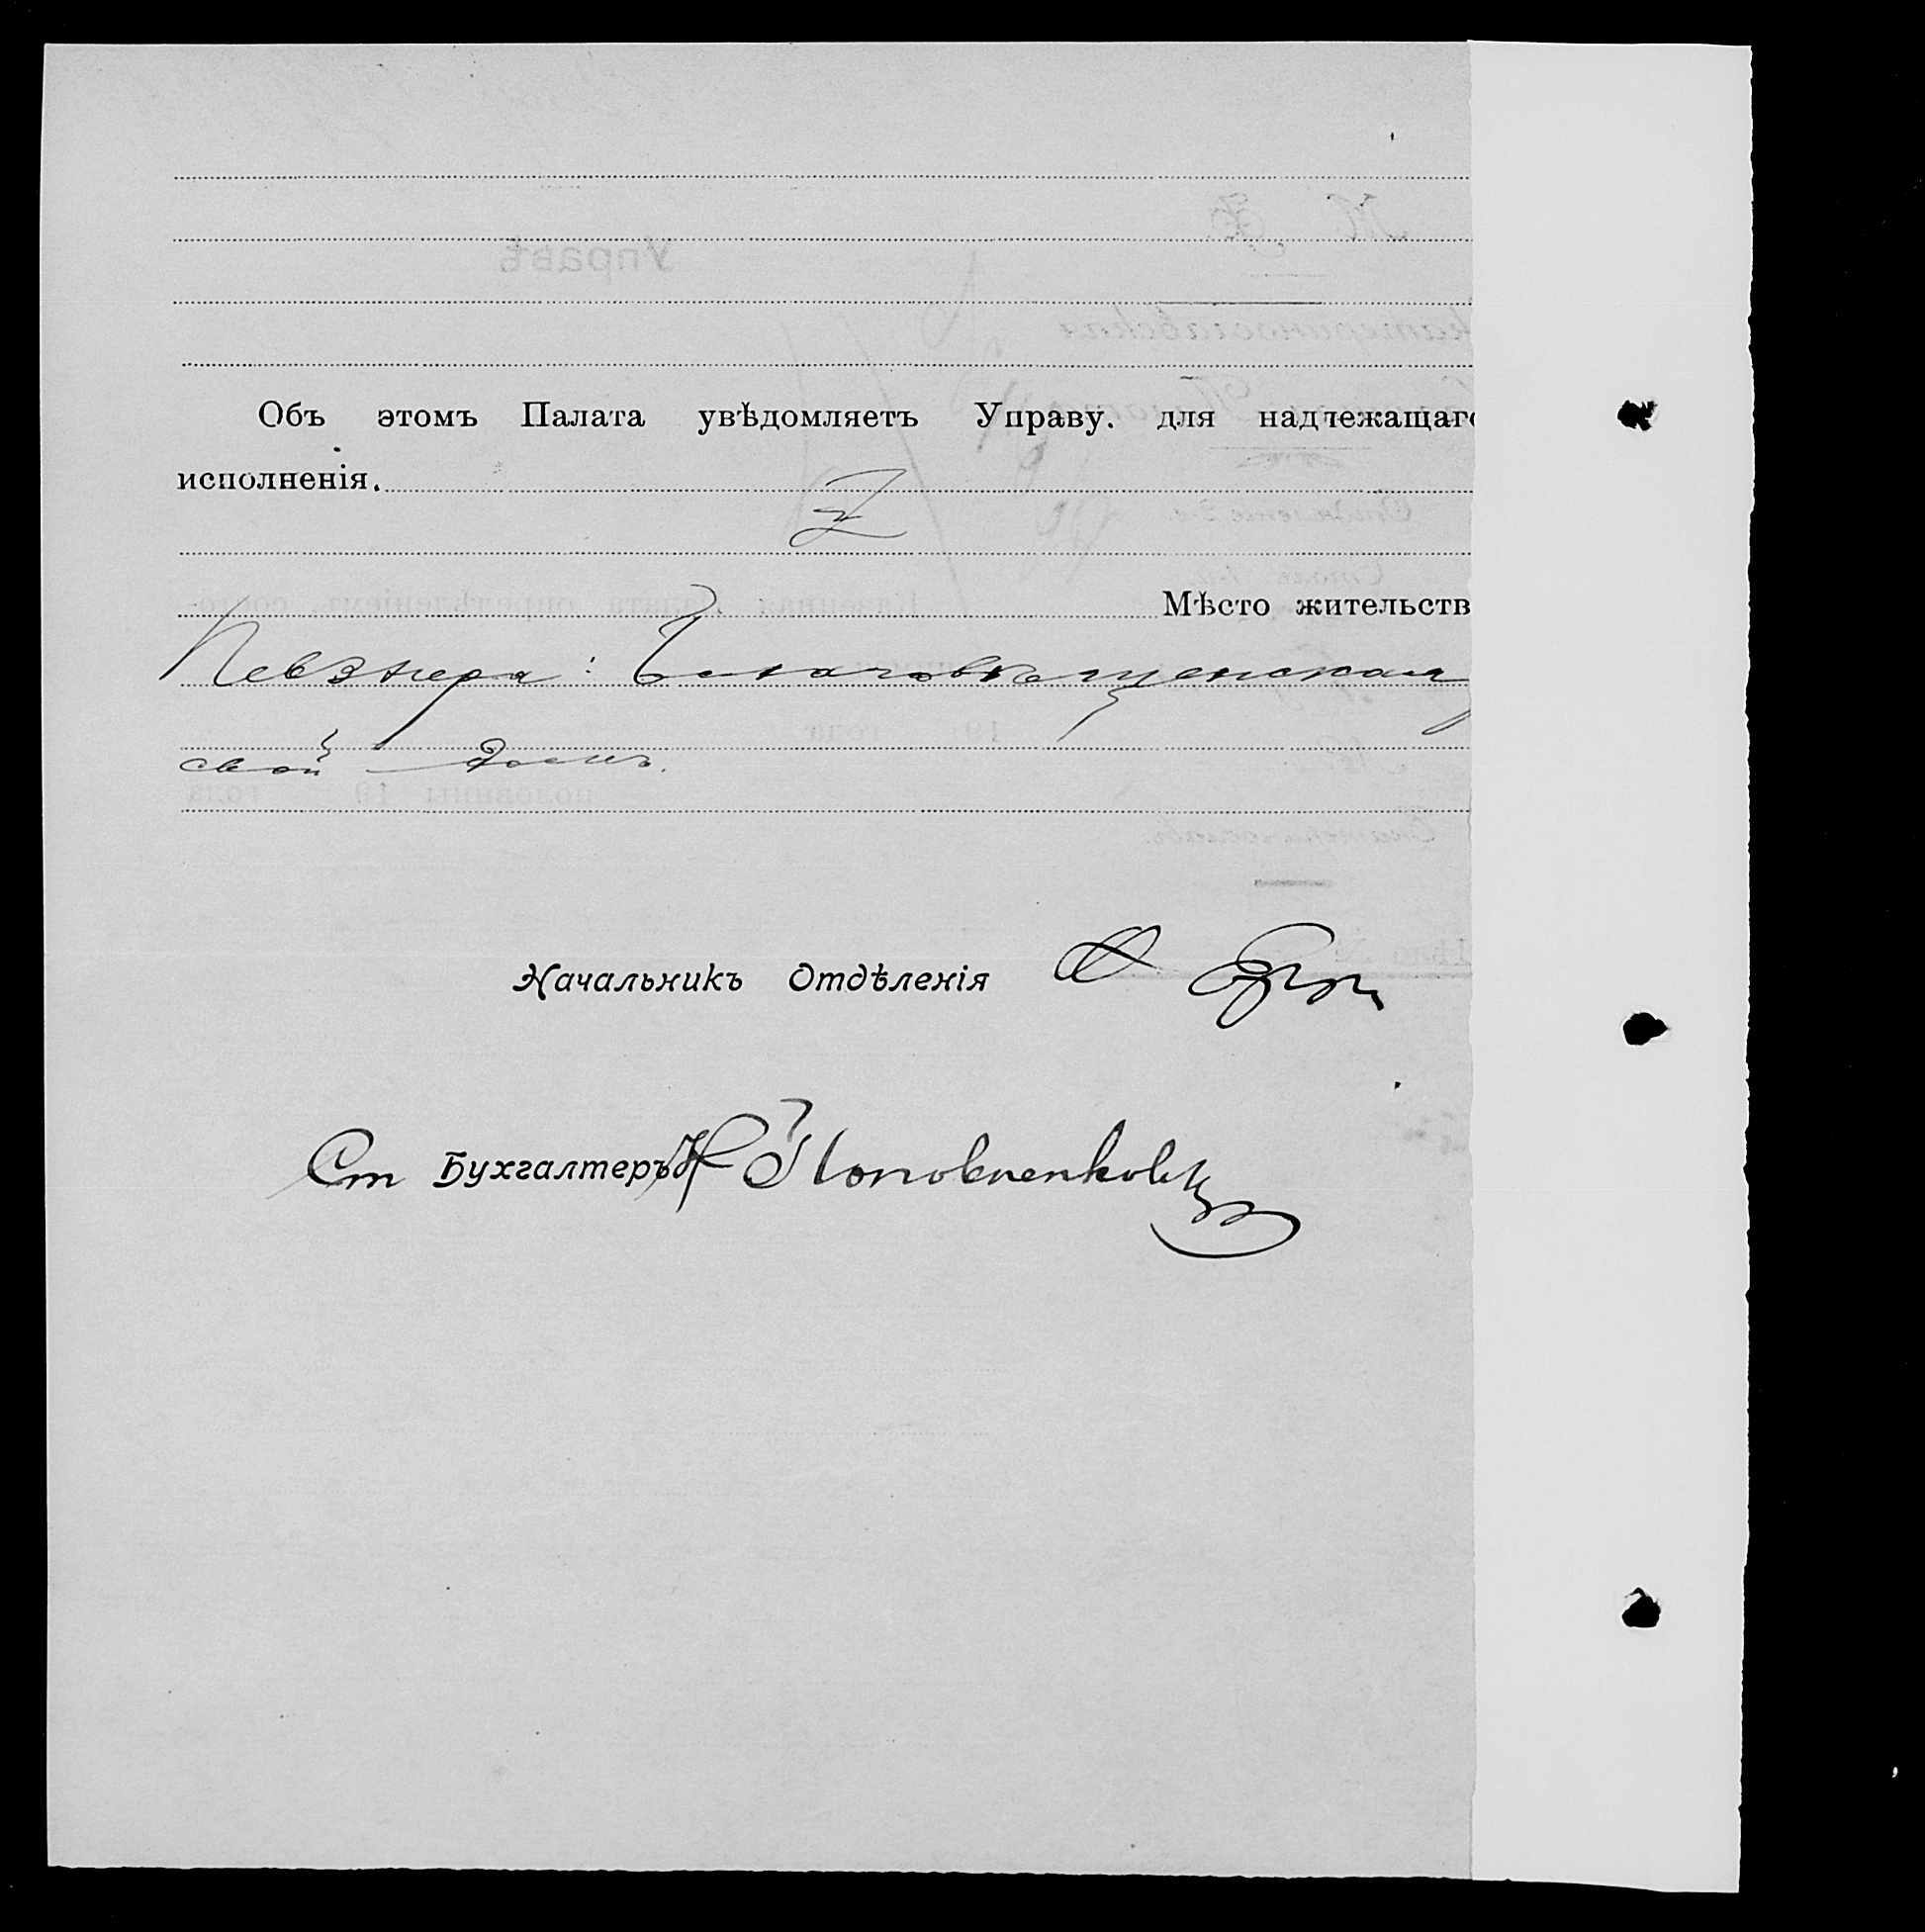 Объ этомъ Палата увѣдомляетъ Управу. для надлежащаго
исполненія.
Мѣсто жительств
Певзнера: Благовѣщенская
свой домъ.
Начальникъ Отдѣленія
Ст Бухгалтеръ